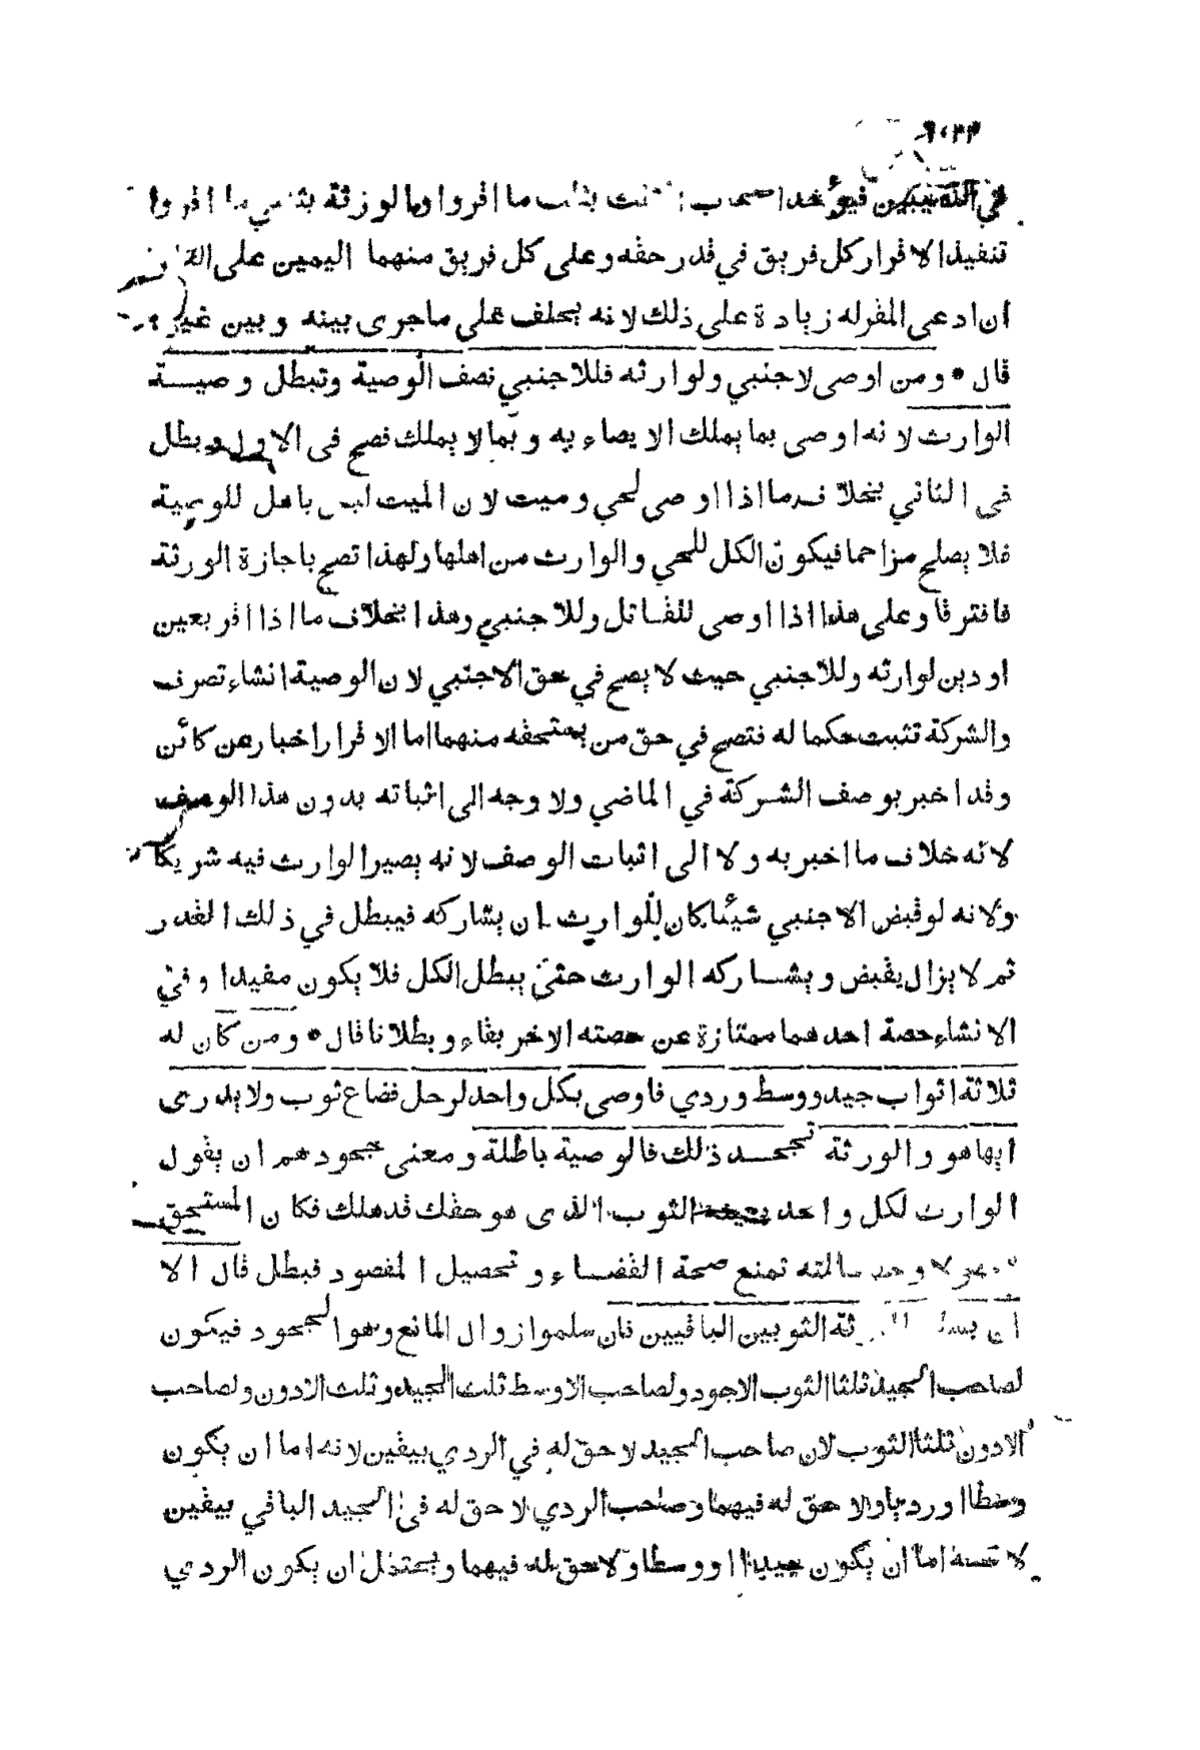 في التنفيذين فيؤخذ اصحاب الثلث بثلث ما اقروا وما لورثة بثلثي ما اقروا
تنفيذا لاقرار كل فريق في قدر حقه وعلى كل فريق منهما اليمين على
ان ادعى المقر له زيادة على ذلك لانه يحلف على ما جرى بينه وبين غيره
قال * ومن اوصى لاجنبي ولوارثه فللاجنبي نصف الوصية وتبطل وصية
الوارث لانه اوصى بما يملك الايصاء به وبما لا يملك فصح في الاول وبطل
في الثاني بخلاف ما اذا اوصى لحي وميت لان الميت ليس باهل للوصية
فلا يصلح مزاحما فيكون الكل للحي والوارث من اهلها ولهذا تصح باجازة الورثة
فافترقا وعلى هذا اذا اوصى للقاتل وللاجنبي وهذا بخلاف ما اذا اقر بعين
او دين لوارثه وللاجنبي حيث لا يصح في حق الاجنبي لان الوصية انشاء تصرف
والشركة تثبت حكما له فتصح في حق من يستحقه منهما اما الاقرار اخبار عن كائن
وقد اخبر بوصف الشركة في الماضي ولا وجه الى اثباته بدون هذا الوصف
لانه خلاف ما اخبر به ولا الى اثبات الوصف لانه يصير الوارث فيه شريكا
ولانه لو قبض الاجنبي شيئا كان للوارث ان يشاركه فيبطل في ذلك القدر
ثم لا يزال يقبض ويشاركه الوارث حتى يبطل الكل فلا يكون مفيدا وفي
الانشاء حصة احدهما ممتازة عن حصته الاخر بقاء وبطلانا قال * ومن كان له
ثلاثة اثواب جيد ووسط وردي فاوصى بكل واحد لرجل فضاع ثوب ولا يدرى
ايها هو والورثة تجحد ذلك فالوصية باطلة ومعنى جحودهم ان يقول
الوارث لكل واحد بعينه الثوب الذى هو حقك قد هلك فكان المستحق
مجهولا وجهالته تمنع صحة القضاء وتحصيل المقصود فبطل قال الا
ان يسلم الورثة الثوبين الباقيين فان سلموا زوال المانع وهو الجحود فيكون
لصاحب الجيد ثلثا الثوب الاجود ولصاحب الاوسط ثلث الجيد وثلث الادون ولصاحب
الادون ثلثا الثوب لان صاحب الجيد لا حق له في الردي بيقين لانه اما ان يكون
وسطا او رديا ولا حق له فيهما وصاحب الردي لا حق له في الجيد الباقي بيقين
لانه اما ان يكون جيدا او وسطا ولا حق له فيهما ويحتمل ان يكون الردي